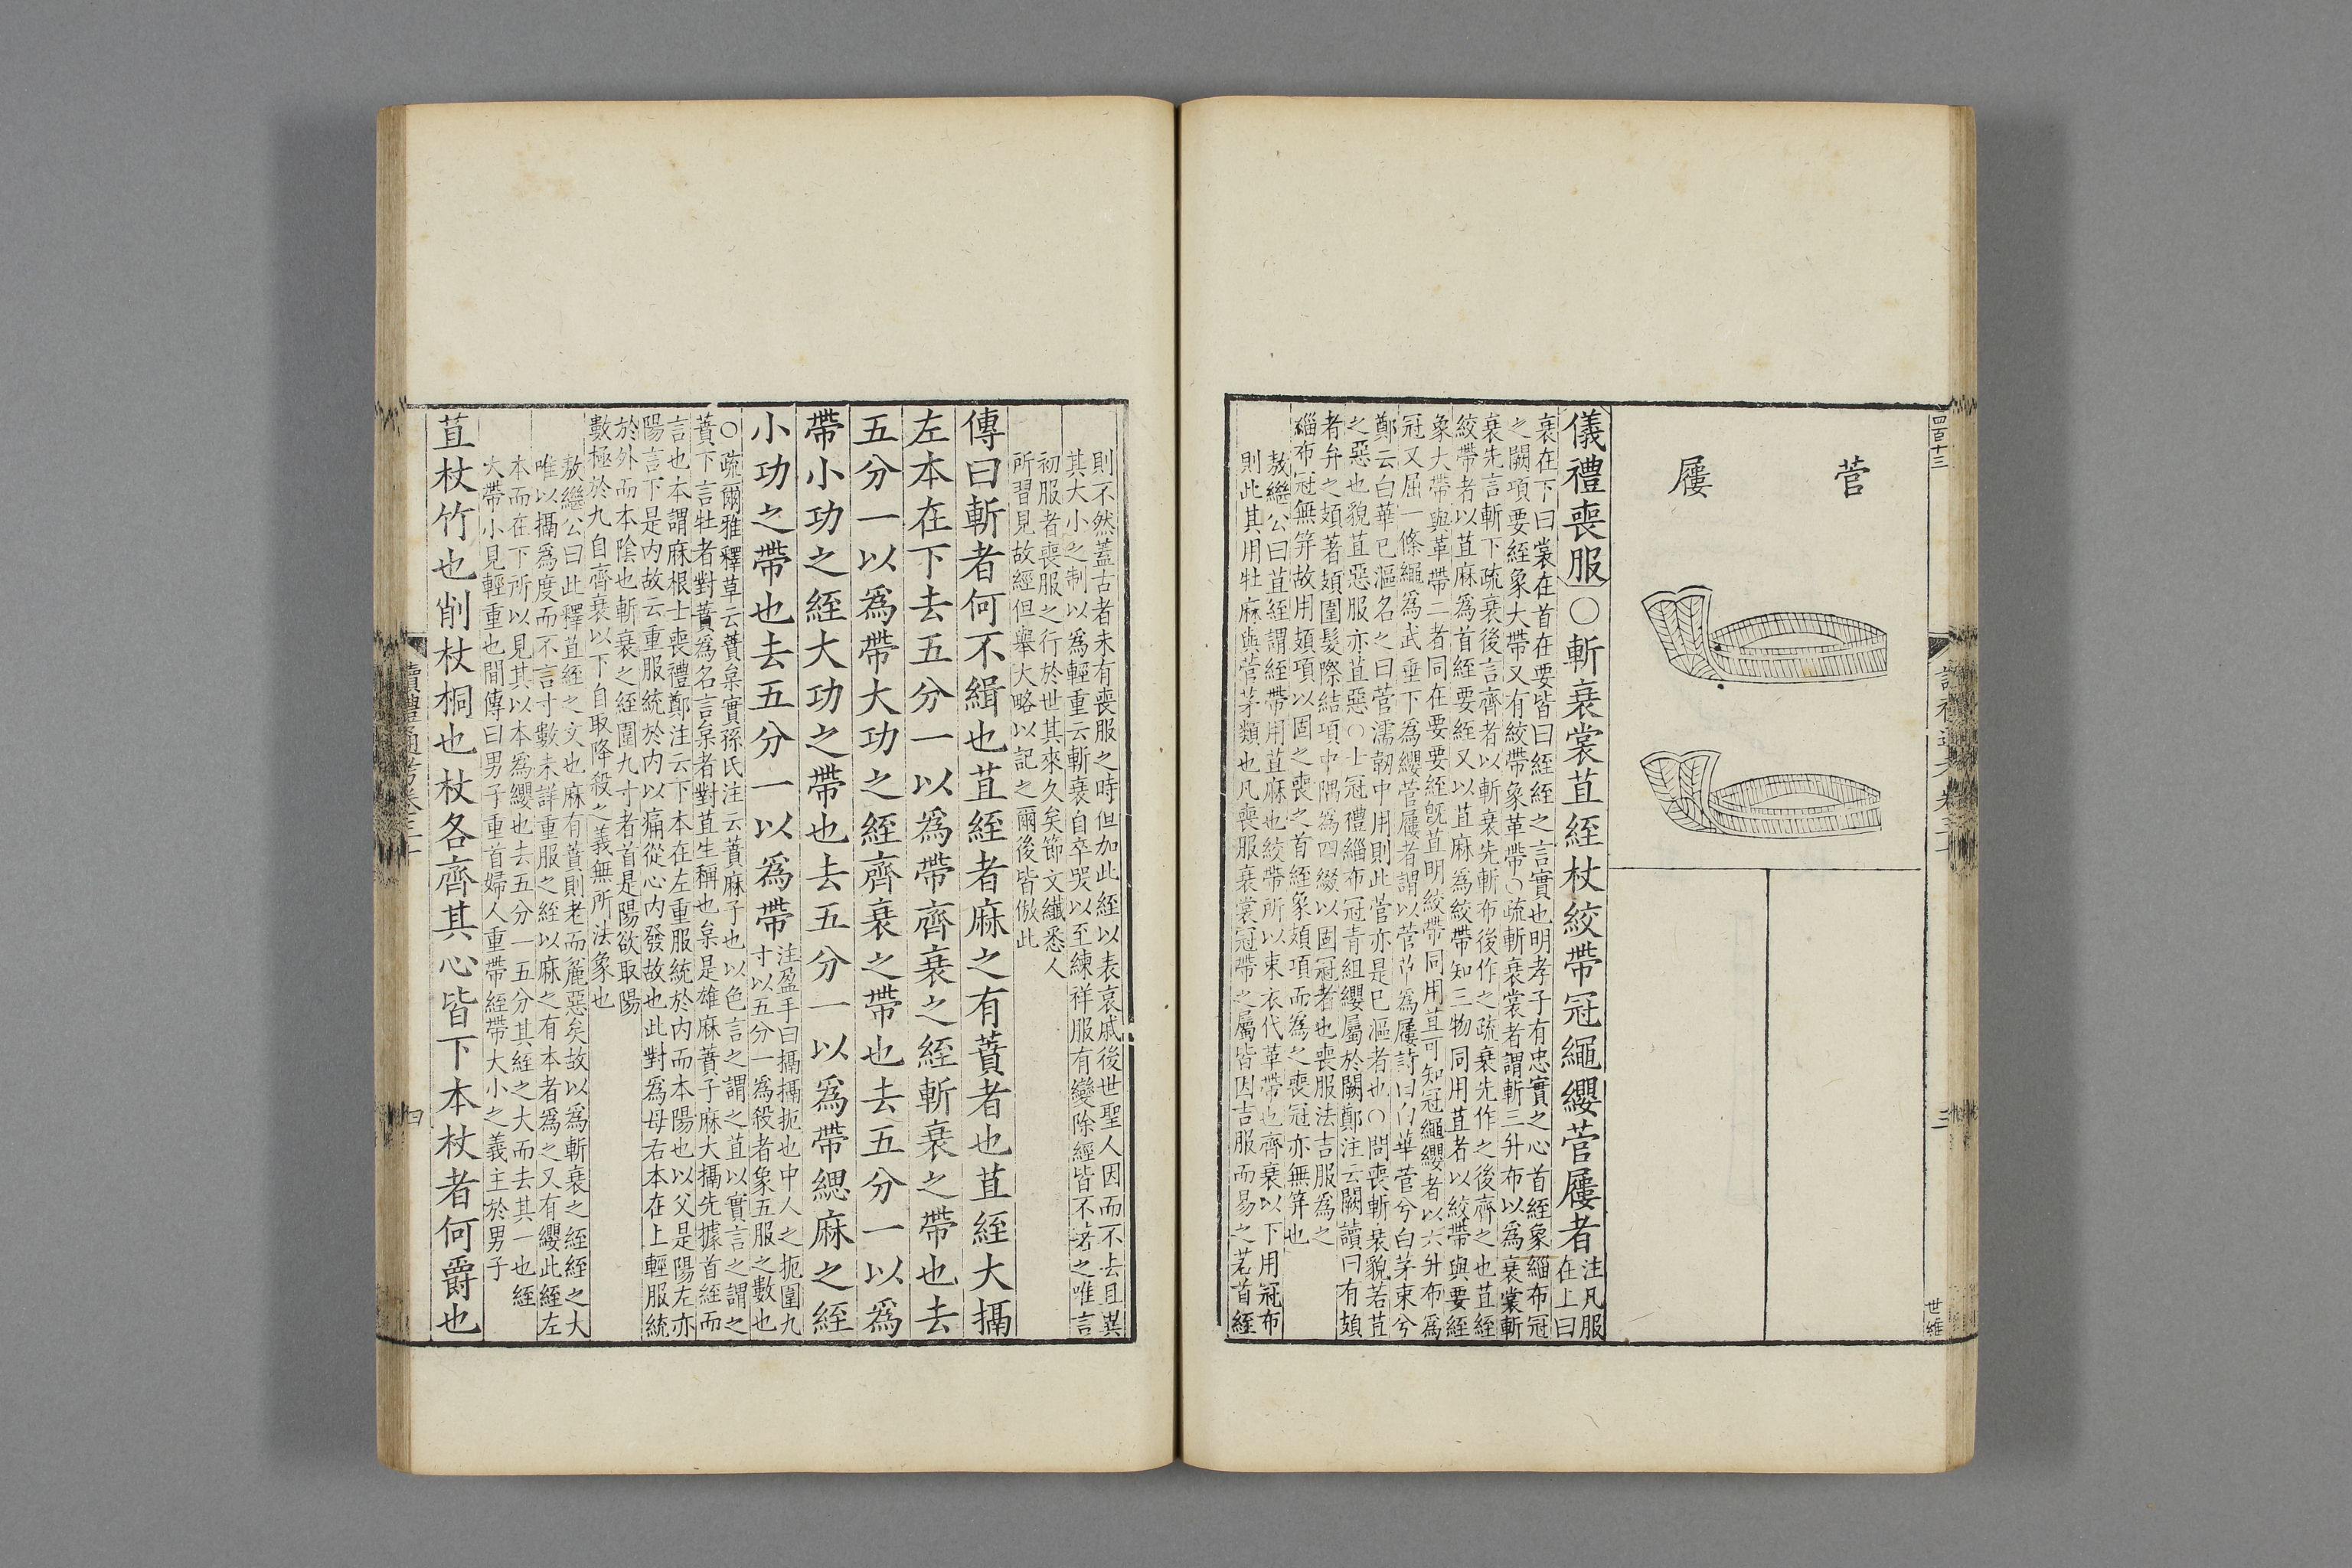 四百十三
三
世維
菅
屨
儀禮喪服〇斬衰裳苴絰杖絞帶冠繩纓菅屨者
注凡服
在上曰
衰在下曰裳在首在要皆曰絰絰之言實也明孝子有忠實之心首絰象緇布冠
之闕項要絰象大帶又有絞帶象革帶〇疏斬衰裳者謂斬三升布以爲衰裳斬
衰先言斬下疏衰後言齊者以斬衰先斬布後作之疏衰先作之後齊之也苴絰
絞帶者以苴麻爲首絰要絰又以苴麻爲絞帶知三物同用苴者以絞帶與要絰
象大帶與革帶二者同在要要絰旣苴明絞帶同用苴可知冠繩纓者以六升布爲
冠又屈一條繩爲武垂下爲纓菅屨者謂以菅草爲屨詩曰白華菅兮白茅束兮
鄭云白華已漚名之曰菅濡韌中用則此菅亦是已漚者也〇問喪斬衰貌若苴
之惡也貌苴惡服亦苴惡〇士冠禮緇布冠青組纓屬於闕鄭注云闕讀曰有頍
者弁之頍著頍圍髮際結項中隅爲四綴以固冠者也喪服法吉服爲之
緇布冠無筓故用頍項以固之喪之首絰象頍項而爲之喪冠亦無筓也
敖繼公曰苴絰謂絰帶用苴麻也絞帶所以束衣代革帶也齊衰以下用冠布
則此其用牡麻與菅茅類也凡喪服衰裳冠帶之屬皆因吉服而易之若首絰
則不然蓋古者未有喪服之時但加此絰以表哀戚後世聖人因而不去且異
其大小之制以爲輕重云斬衰自卒哭以至練祥服有變除經皆不著之唯言
初服者喪服之行於世其來久矣節文纖悉人
所習見故經但舉大略以記之爾後皆倣此
傳曰斬者何不緝也苴絰者麻之有蕡者也苴絰大搹
左本在下去五分一以爲帶齊衰之絰斬衰之帶也去
五分一以爲帶大功之絰齊衰之帶也去五分一以爲
帶小功之絰大功之帶也去五分一以爲帶緦麻之絰
小功之帶也去五分一以爲帶
注盈手曰搹搹扼也中人之扼圍九
寸以五分一爲殺者象五服之數也
〇疏爾雅釋草云蕡枲實孫氏注云蕡麻子也以色言之謂之苴以實言之謂之
蕡下言牡者對蕡爲名言枲者對苴生稱也枲是雄麻蕡子麻大搹先據首絰而
言也本謂麻根士喪禮鄭注云下本在左重服統於內而本陽也以父是陽左亦
陽言下是內故云重服統於內以痛從心內發故也此對爲母右本在上輕服統
於外而本陰也斬衰之絰圍九寸者首是陽欲取陽
數極於九自齊衰以下自取降殺之義無所法象也
敖繼公曰此釋苴絰之文也麻有蕡則老而麤惡矣故以爲斬衰之絰絰之大
唯以搹爲度而不言寸數未詳重服之絰以麻之有本者爲之又有纓此絰左
本而在下所以見其以本爲纓也去五分一五分其絰之大而去其一也絰
大帶小見輕重也閒傳曰男子重首婦人重帶絰帶大小之義主於男子
苴杖竹也削杖桐也杖各齊其心皆下本杖者何爵也
讀禮通考卷三十
四